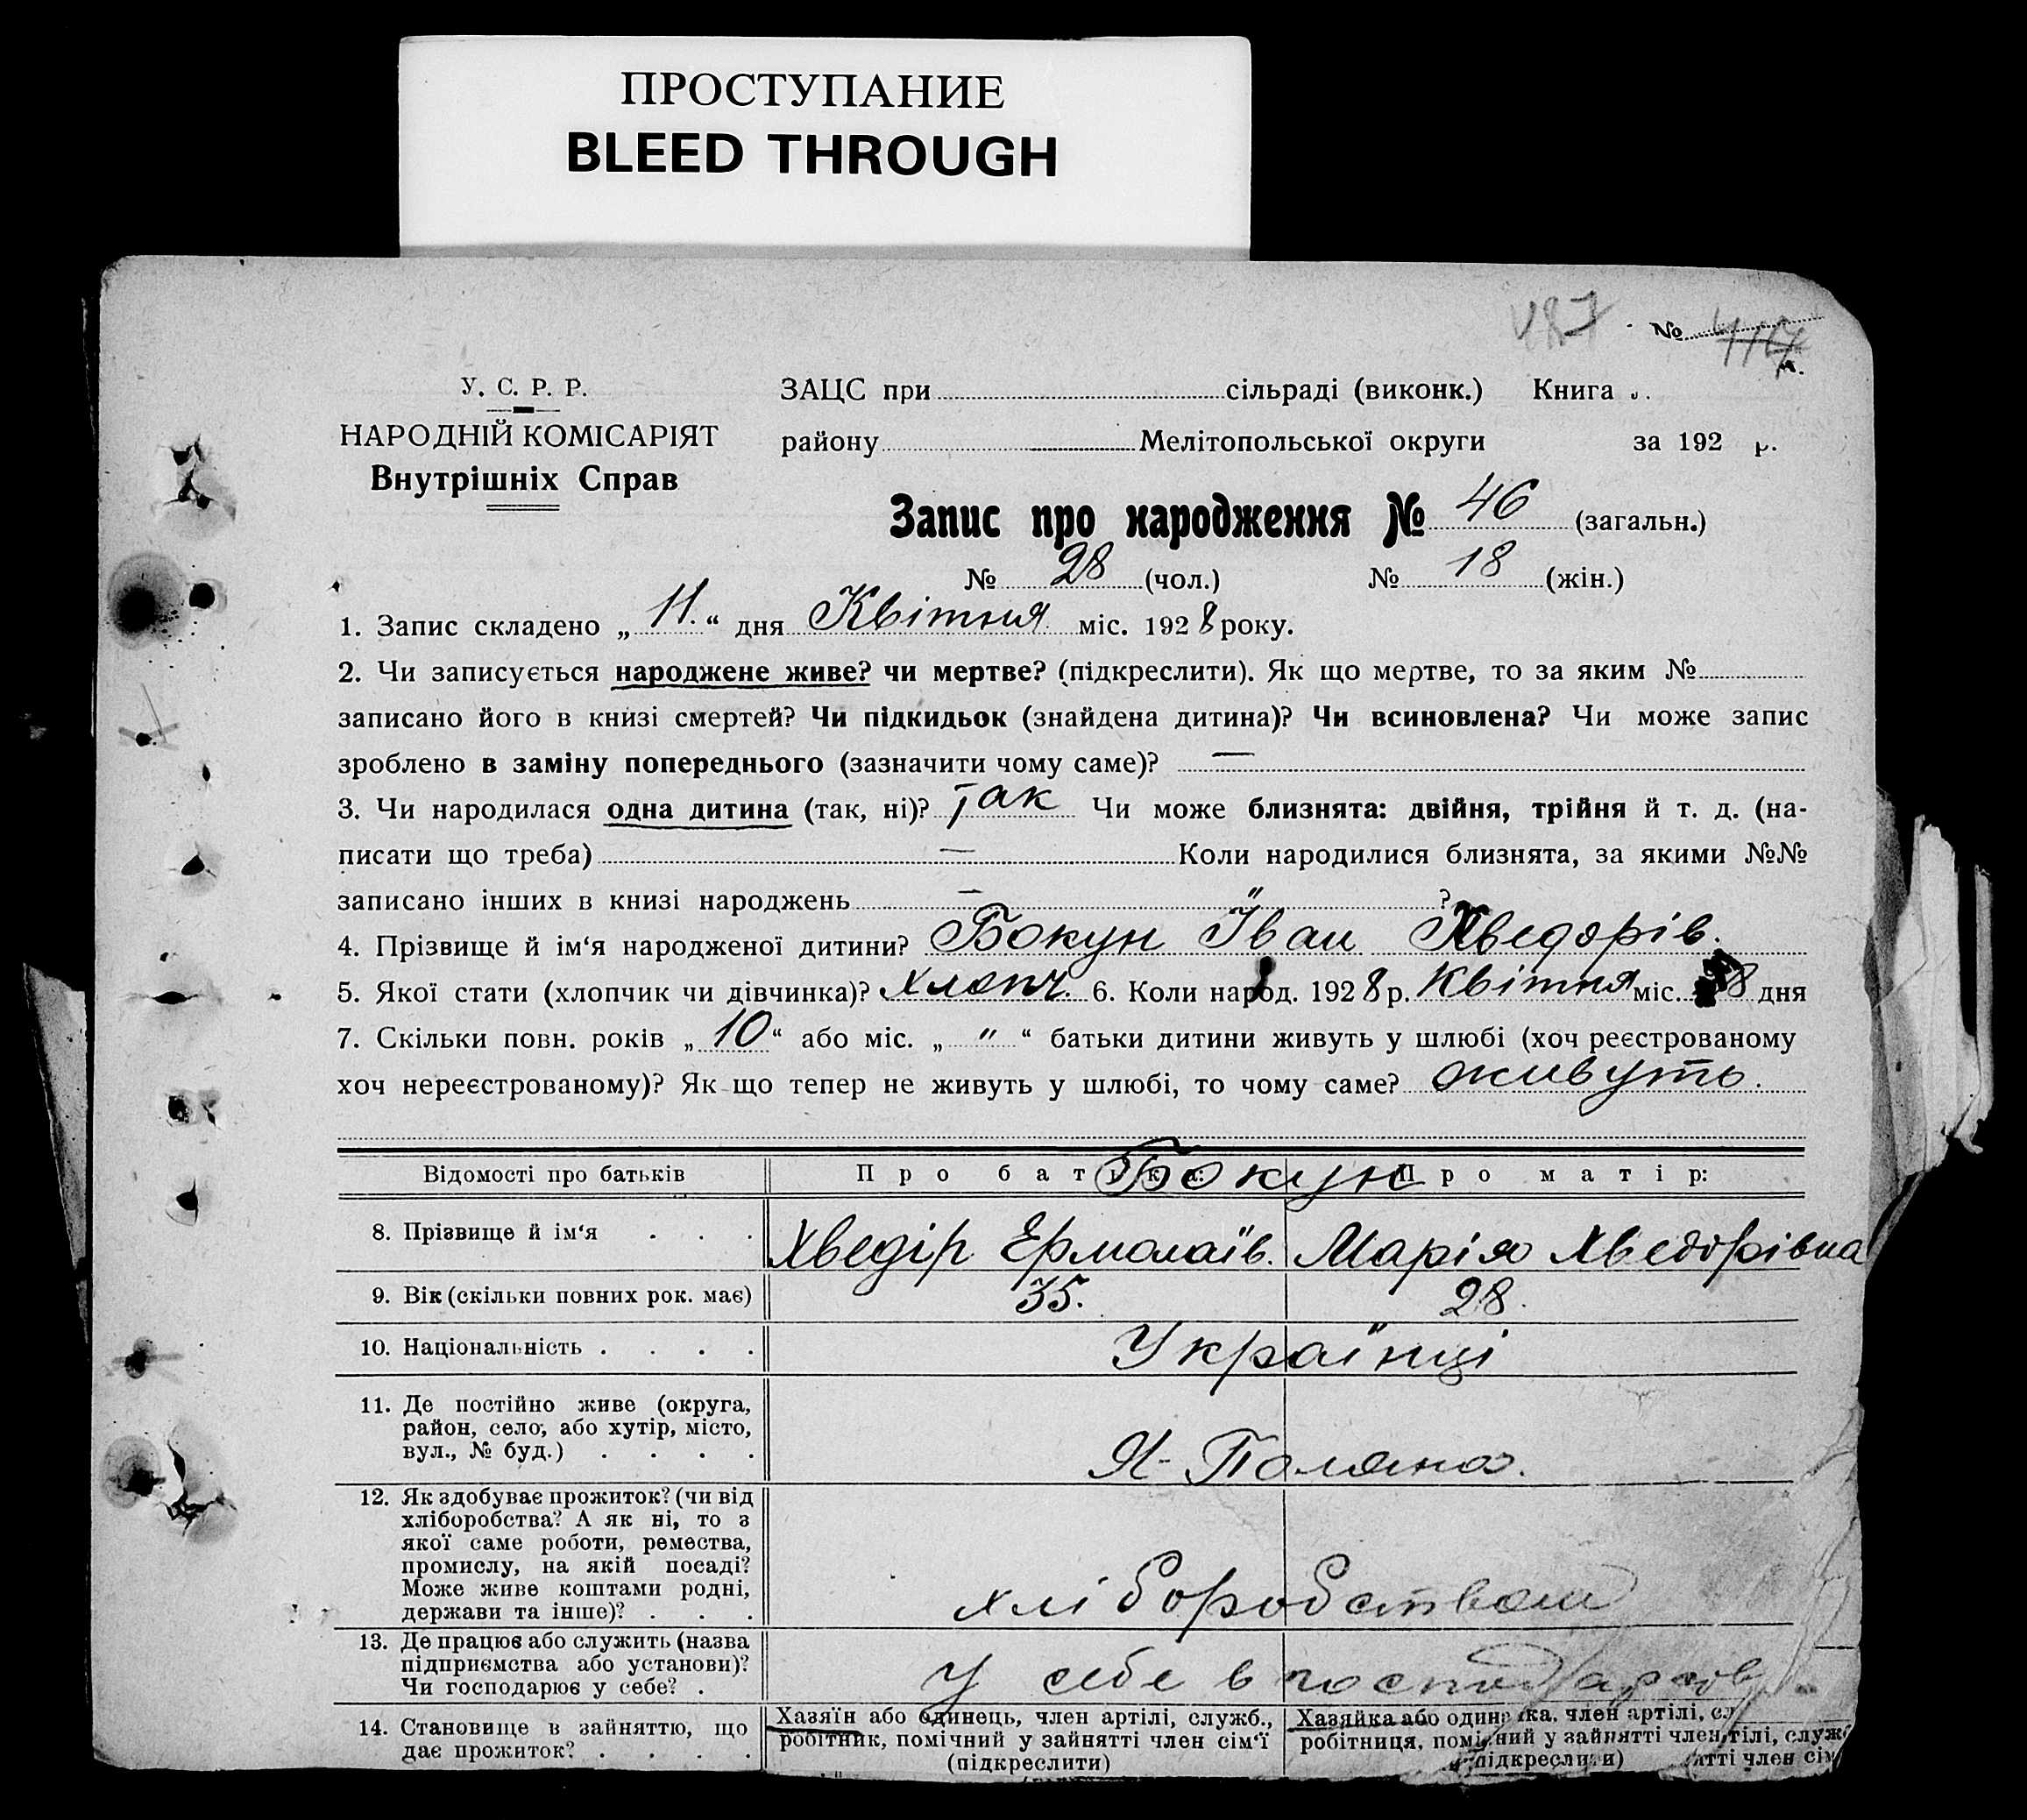 ПРОСТУПАНИЕ
BLEED THROUGH
487 № 417
У. С. Р. Р.
НАРОДНІЙ КОМІСАРІЯТ
Внутрішніх Справ
ЗАЦС при сільраді (виконк.) Книга
району Мелітопольської округи за 192 р.
Запис про народження № 46 (загальн.)
№ 28 (чол.) № 18 (жін.)
1. Запис складено „ 11. “ дня Квітня міс. 1928 року.
2. Чи записується народжене живе? чи мертве? (підкреслити). Як що мертве, то за яким №
записано його в книзі смертей? Чи підкидьок (знайдена дитина)? Чи всиновлена? Чи може запис
зроблено в заміну попереднього (зазначити чому саме)? —
3. Чи народилася одна дитина (так, ні)? Так Чи може близнята: двійня, трійня й т. д. (на-
писати що треба) — Коли народилися близнята, за якими №№
записано інших в книзі народжень — " ?
4. Прізвище й ім‘я народженої дитини? Бокун Іван Хведорів.
5. Якої стати (хлопчик чи дівчинка)? хлопч. 6. Коли народ. 1928 р. Квітня міс. 8 дня
7. Скільки повн. років „ 10 “ або міс. „ " “ батьки дитини живуть у шлюбі (хоч реєстрованому
хоч нереєстрованому)? Як що тепер не живуть у шлюбі, то чому саме? живуть.
Відомості про батьків Про батька: Про матір:
Бокун
8. Прізвище й ім‘я . . . Хведір Ермолаїв. Марія Хведорівна
9. Вік (скільки повних рок. має) 35. 28.
10. Національність . . . . Українці
11. Де постійно живе (округа,
район, село, або хутір, місто,
вул., № буд.) . . . . Я-Поляна.
12. Як здобуває прожиток? (чи від
хліборобства? А як ні, то з
якої саме роботи, ремества,
промислу, на якій посаді?
Може живе коштами родні,
держави та інше)? . . . хліборобством
13. Де працює або служить (назва
підприємства або установи)?
Чи господарює у себе? . У себе в
14. Становище в зайняттю, що
дає прожиток? . . . .
Хазяїн або одинець, член артілі, служб.,
робітник, помічний у зайнятті член сім‘ї
(підкреслити)
Хазяйка або один ка, член артілі, сл
робітниця, помічний у зайнятті член тілі, служ
підкреслити) ятті член сім